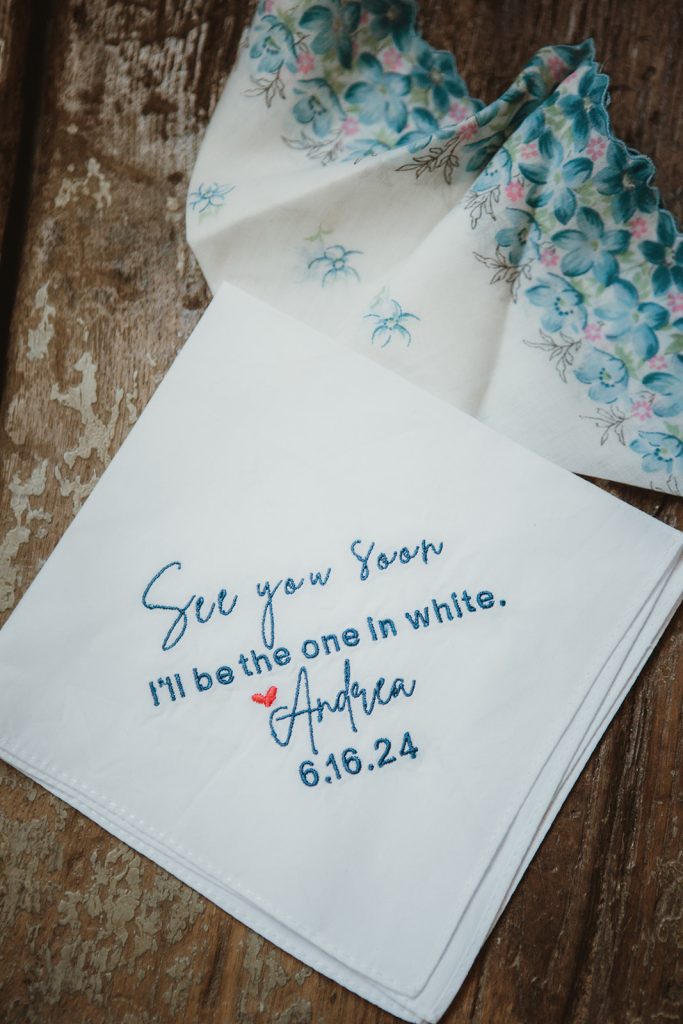 See you soon
I'll be the one in white.
Andrea
6.16.24